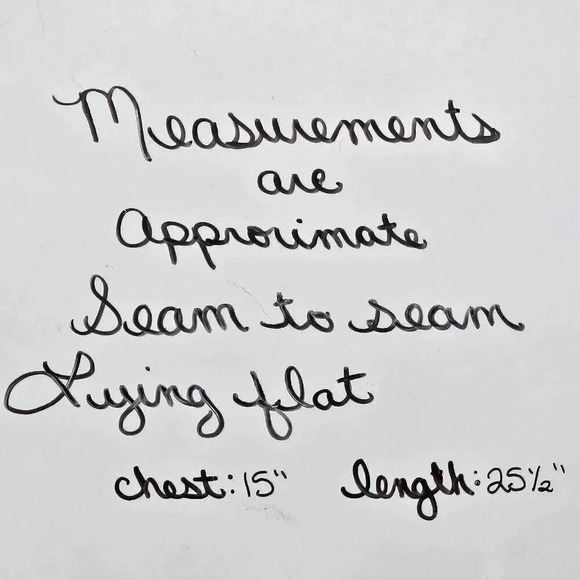 Measurements
are
Approximate
Seam to seam
Lying flat
chest: 15" length: 25½"